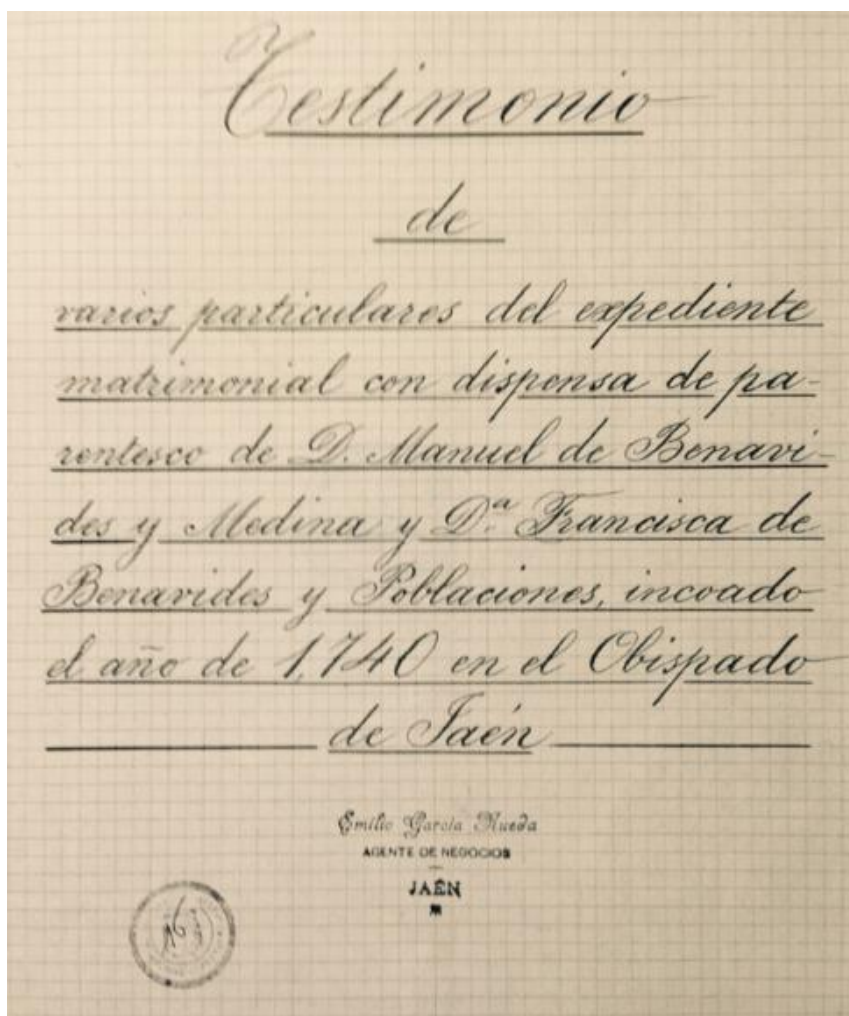 Testimonio
de
varios particulares del expediente
matrimonial con dispensa de pa-
rentesco de D. Manuel de Benavi-
des y Medina y D.ª Francisca de
Benavides y Poblaciones, incoado
el año de 1,740 en el Obispado
de Jaén
Emilio García Rueda
AGENTE DE NEGOCIOS
JAÉN